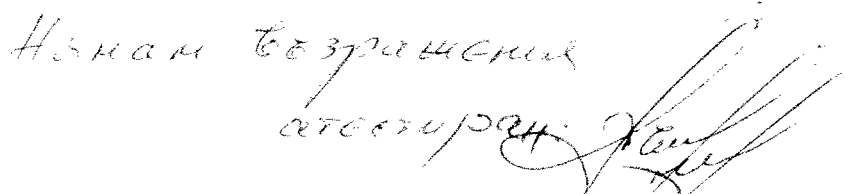 Нямам възражения
атестиран: